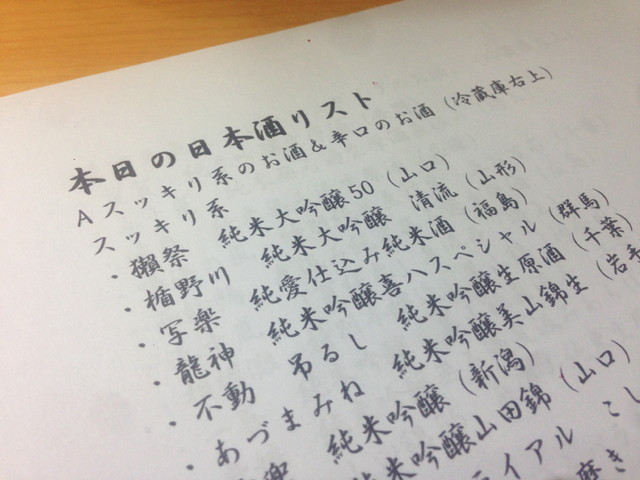 本日の日本酒リスト
Aスッキリ系のお酒&辛口のお酒(冷蔵庫右上)
スッキリ系
・獺祭 純米大吟醸50(山口)
・楯野川 純米大吟醸 清流(山形)
・写楽 純愛仕込み純米酒(福島)
・龍神 純米吟醸喜八スペシャル(群馬)
・不動 吊るし 純米吟醸生原酒(千葉)
・あづまみね 純米吟醸美山錦生(岩手
純米吟醸(新潟)
純米吟醸山田錦(山口)
ライアル こし
磨き